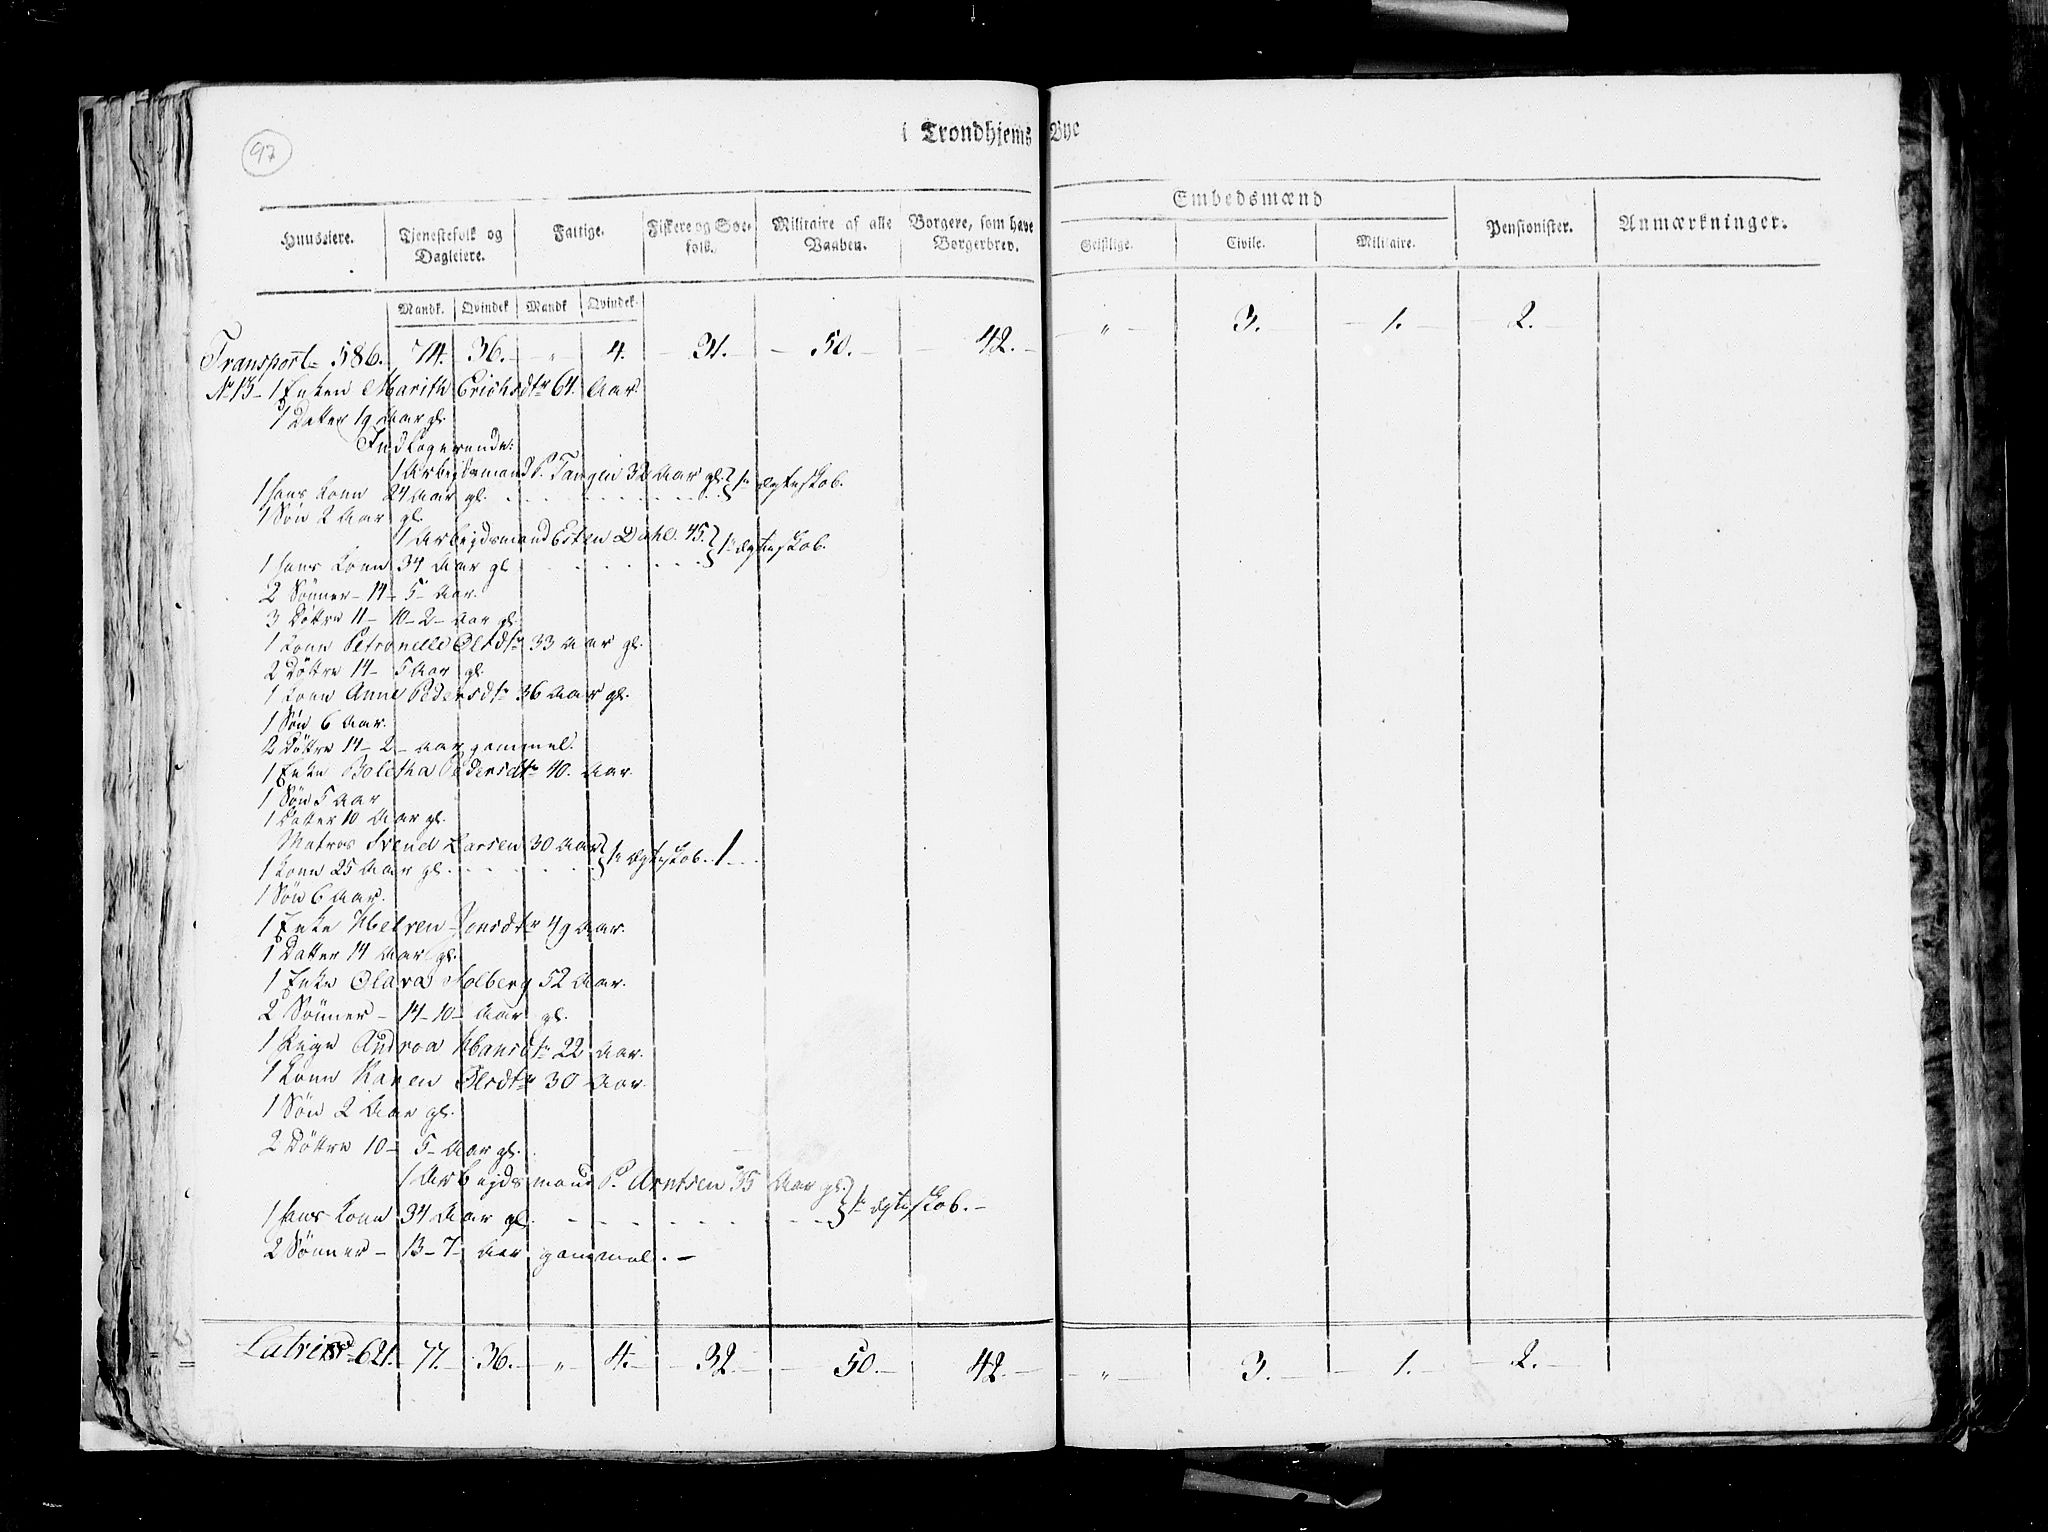 97
i Trondhjems Bye
Huuseiere. Tjenestefolk og Dagleiere. Fattige. Fiskere og Søefolk. Militaire af alle Vaaben. Borgere, som have Borgerbrev. Embedsmænd Pensionister. Anmærkninger.
Geistlige. Civile. Militaire.
Mandk. Qvindek Mandk Qvindek.
Transport 586. 74. 36. " 4. 31. 50. 42. " 3. 1. 2.
No 13 - 1 Enken Marith Erichsdtr 64. Aar.
1 Datter 19 Aar gl.
Indlogerende:
1 Arbejdsmand P. Tangen 32 Aar gl. } 1te Ægteskab.
1 hans Kone 24 Aar gl.
1 Søn 2 Aar gl.
1 Arbejdsmand Esten Dahl 45. } 1te Ægteskab.
1 hans Kone 34 Aar gl
2 Sønner - 14 - 5 - Aar.
3 Døttre 11 - 10 - 2 - Aar gl.
1 Kone Petronelle Olsdtr 33 Aar gl.
2 Døttre 14 - 5 Aar gl.
1 Kone Anne Pedersdtr 36 Aar gl.
1 Søn 6 Aar.
2 Døttre 14 - 2 - Aar gammel.
1 Enke Boletha Pedersdtr 40. Aar.
1 Søn 5 Aar
1 Datter 10 Aar gl.
Matros Svend Larsen 30 Aar } 1te Ægteskab. 1
1 Kone 25 Aar gl.
1 Søn 6 Aar.
1 Enke Jonsdtr 49 Aar.
1 Datter 14 Aar gl.
1 Enke Olava Solberg 52 Aar.
2 Sønner - 14 - 10 - Aar gl.
1 Pige Andrea Hansdtr 22 Aar.
1 Kone Karen Olsdtr 30 Aar.
1 Søn 2 Aar gl.
2 Døttre 10 - 5 - Aar gl.
1 Arbejdsmand P. Arntsen 35 Aar gl. } 1te Ægteskab. -
1 hans Kone 34 Aar gl.
2 Sønner - 13 - 7 - Aar gammel. -
621. 77. 36. " 4. 32. 50. 42. " 3. 1. 2.